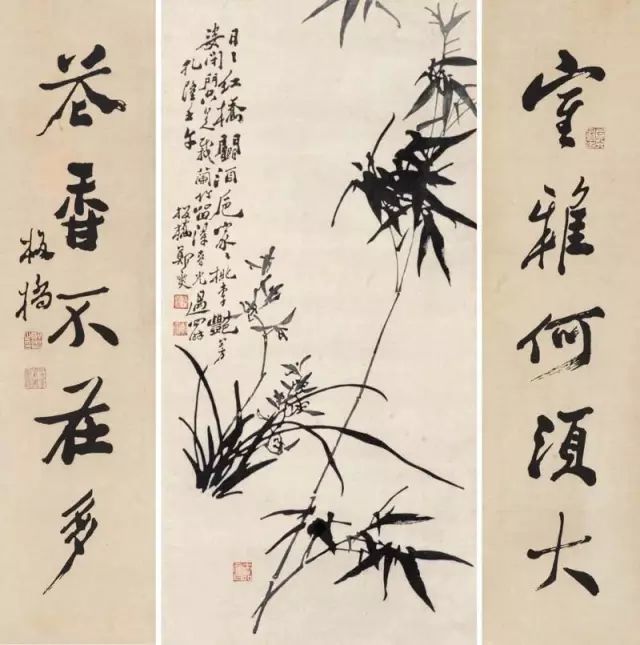 室雅何須大
日〻紅橋鬭酒巵家〻桃李艷芳
姿閉門只是栽蘭竹留得春光過四時
乾隆壬午
板橋鄭燮
花香不在多
板橋